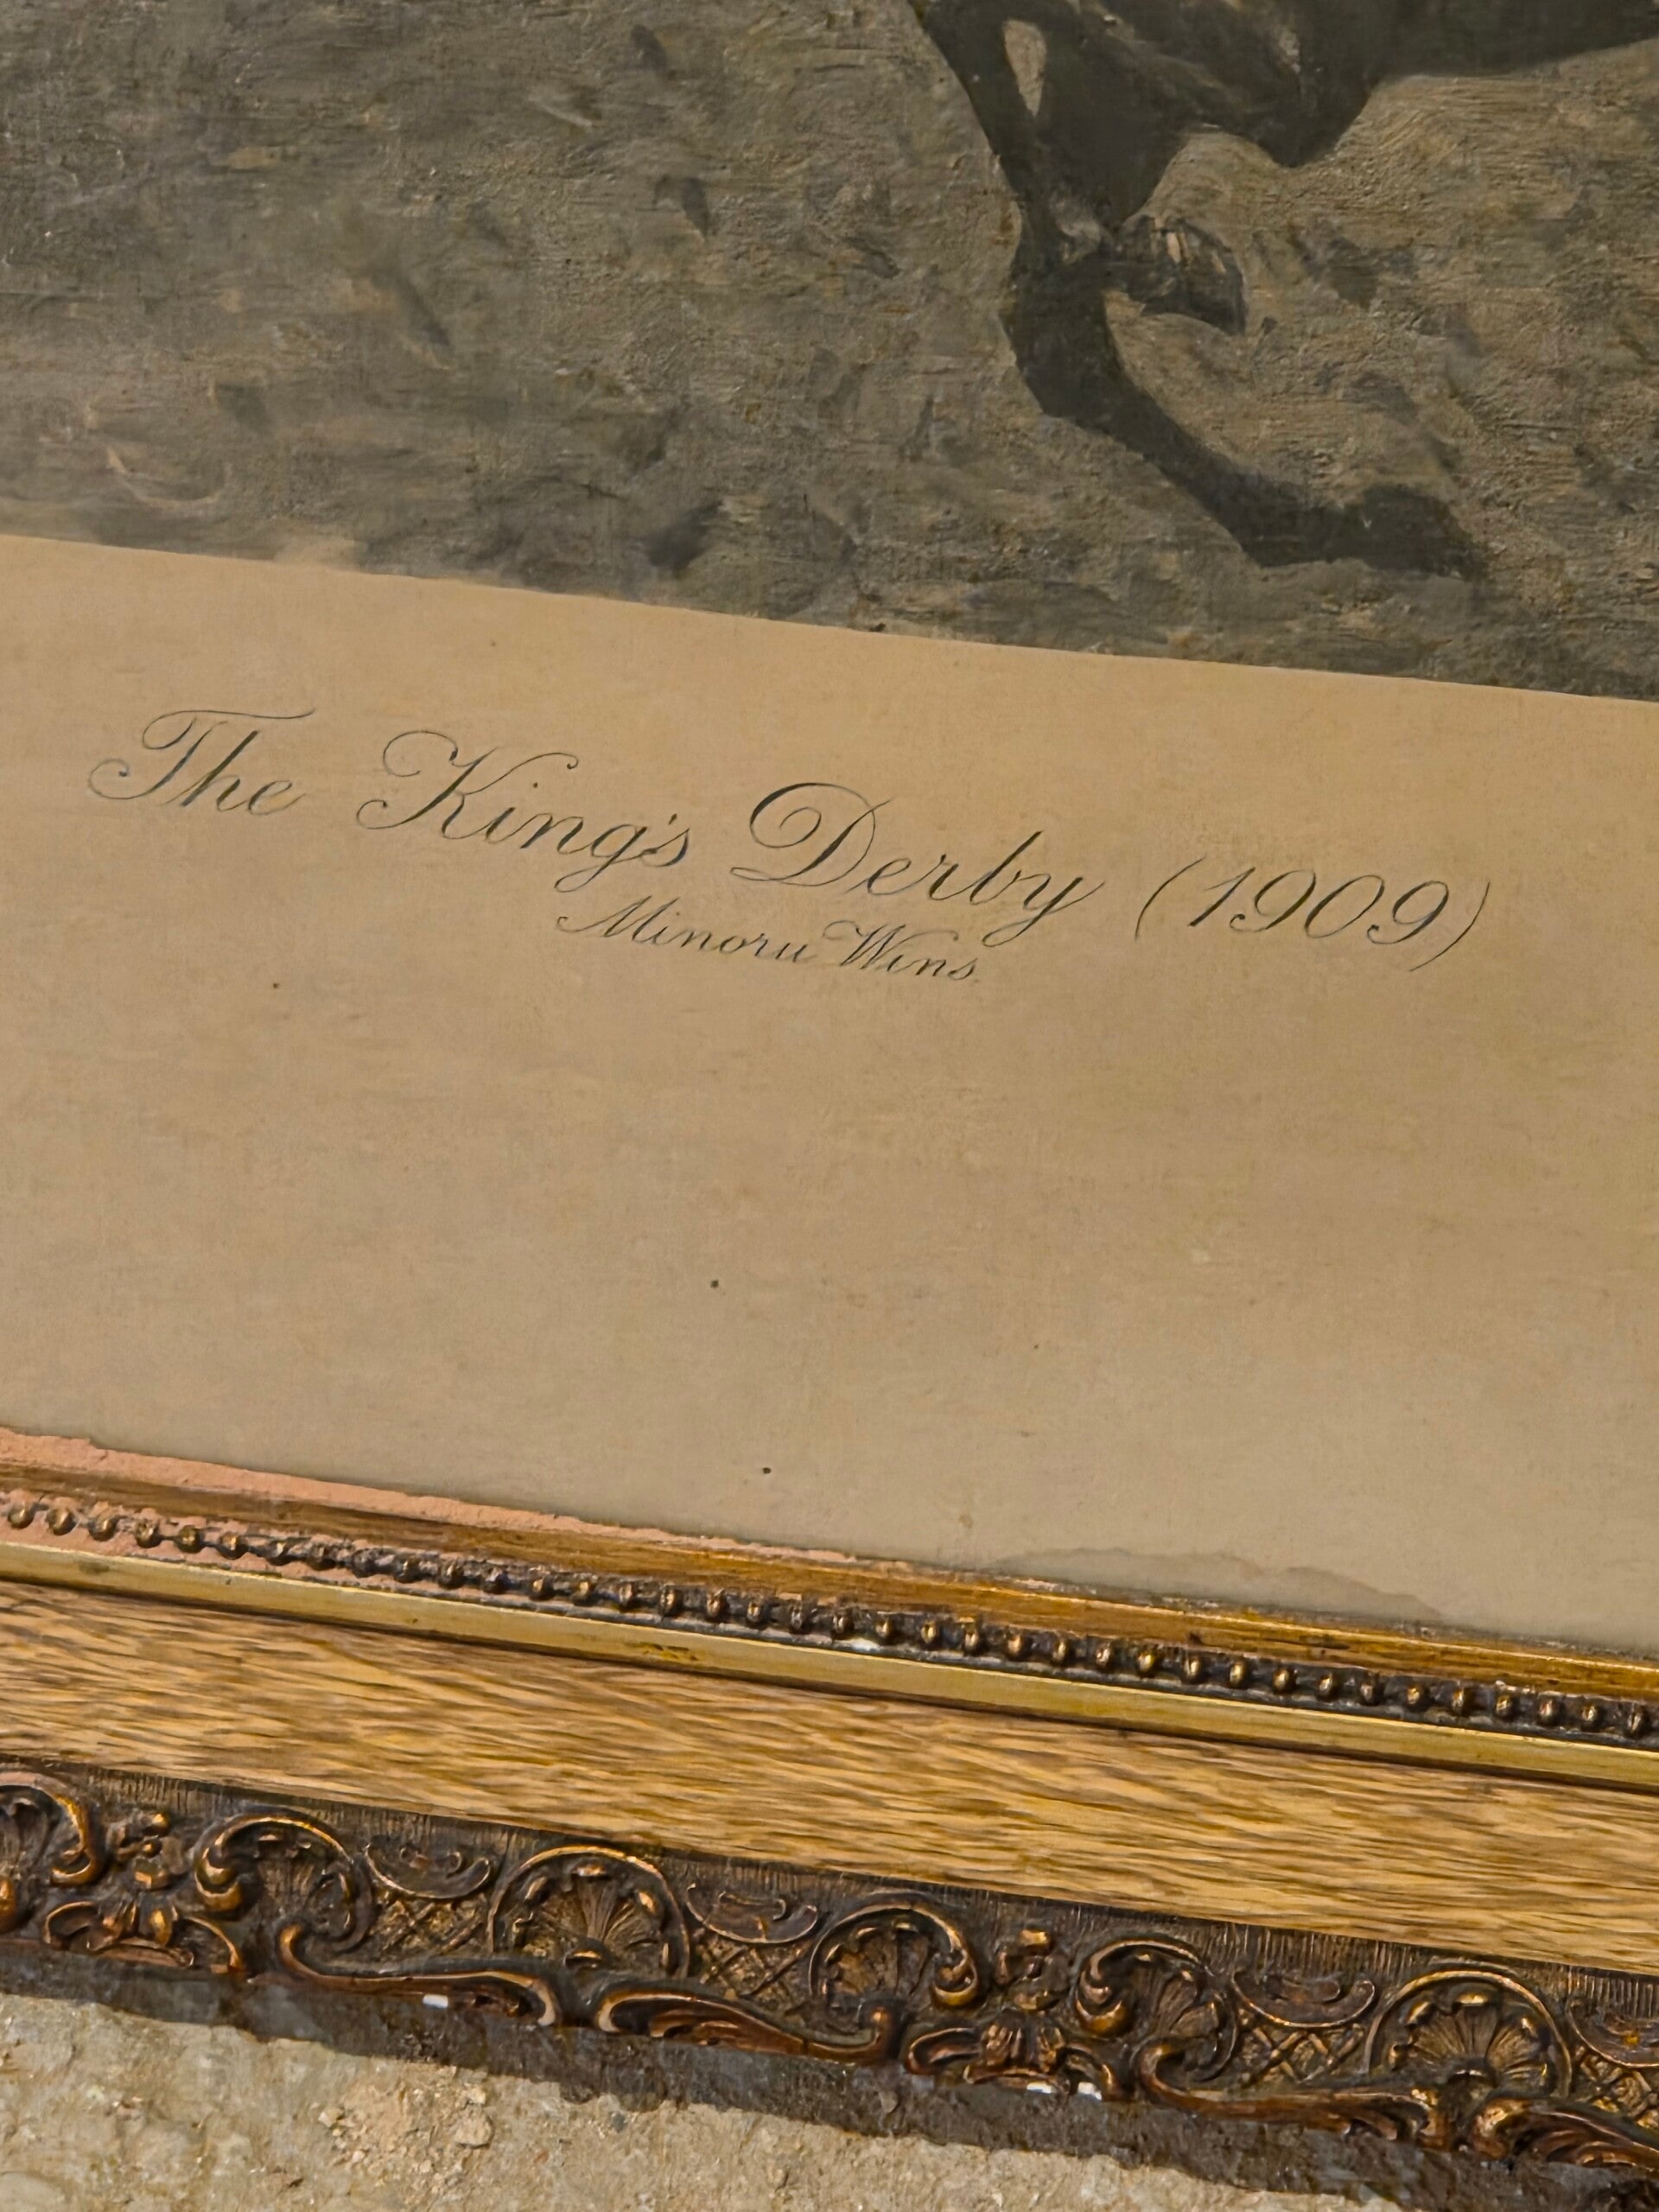 The King's Derby (1909)
Minoru Wins